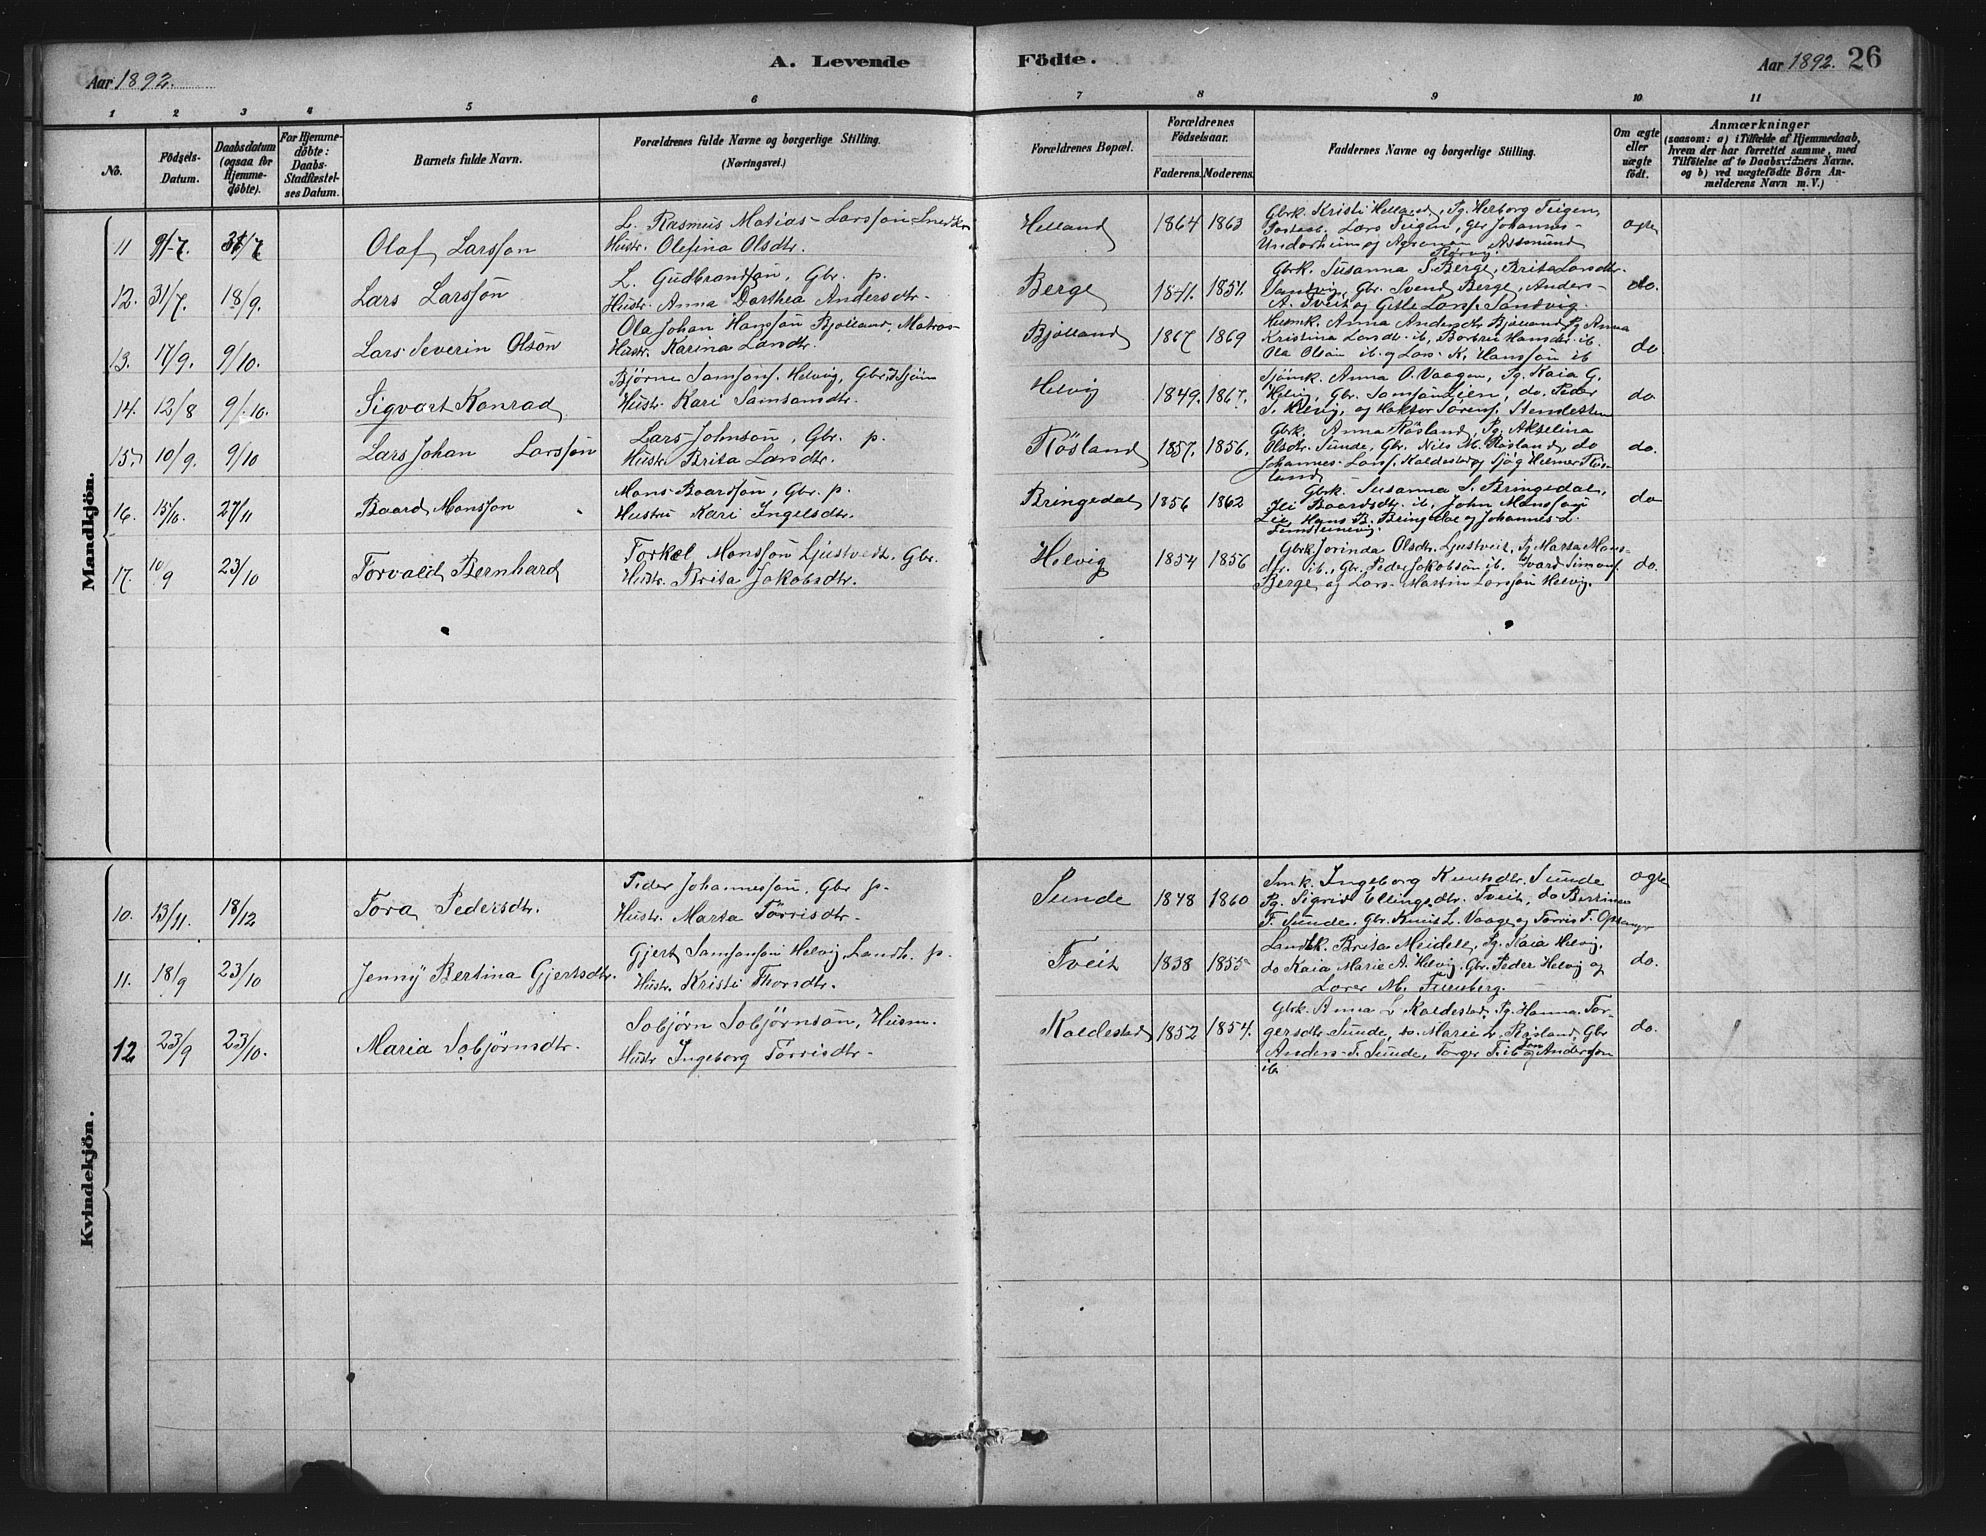 Aar 1892.
A. Levende Födte.
Aar 1892. 26
1 2 3 4 5 6 7 8 9 10 11
No.
Födsels-Datum.
Daabsdatum (ogsaa for Hjemmedöbte).
For Hjemmedöbte: Daabs-Stadfæstelses Datum.
Barnets fulde Navn.
Forældrenes fulde Navne og borgerlige Stilling. (Næringsvei.)
Forældrenes Bopæl.
Forældrenes Födselsaar.
Faderens. Moderens.
Faddernes Navne og borgerlige Stilling.
Om ægte eller uægte födt.
Anmærkninger
(saasom: a) i Tilfælde af Hjemmedaab,
hvem der har forrettet samme, med
Tilföielse af to Daabsvidners Navne,
og b) ved uægtefödte Börn Anmelderens Navn m. V.)
Mandkjön.
11 9/7 31/7 Olaf Larsson
L. Rasmus Matias Larsson
Hustr. Olefina Olsdtr.
Helland 1864 1863
Gbrk. Kristi Helland, Pg. Herborg Teigen,
Lars Teigen, Johannes
Undarheim og Aasmund
Rørvig
ogte
12. 31/7. 18/9. Lars Larsson
L. Gudbrandson, Gbr. p.
Hustr. Anna Dorthea Andersdtr.
Berge 1841. 1851.
Gbrk. Susanna S. Berge, Brita Larsdtr.
Sandvig, Gbr. Svend Berge, Anders
A. Tveit og Gitle Larss. Sandvig.
do.
13. 17/9. 9/10. Lars Severin Olson
Ola Johan Hansson Bjolland, Matros
Hustr. Karina Larsdtr.
Bjolland 1867 1869
Husmk. Anna Andersdtr Bjolland, Pg Anna
Kristina Larsdtr ib, Barbru Hansdtr ib.
Ola Olson ib og Lars K. Hansson ib
do
14. 12/8 9/10. Sigvart Konrad
Bjørne Samsons. Helvig, Gbr.
Hustr. Kari Samsonsdtr.
Helvig 1849. 1867.
Sjømk. Anna O. Vaagen, Pg. Kaia G.
Helvig, Gbr. Samson Lien, do. Peder
S. Helvig, og Sørens. Stendesten
do
15. 10/9. 9/10 Lars Johan Larsson
Lars Johnson, Gbr. p.
Hustr. Brita Larsdtr.
Røsland 1857. 1856.
Gbrk. Anna Røsland, Pg. Akselina
Olsdtr. Sunde, Gbr. Nils M. Røsland, do
Johannes Larss. Kaldestad og Hilmer Røsland
do.
16. 15/10. 27/11 Baard Monsson
Mons Baardson, Gbr. p.
Hustru Kari Ingelsdtr.
Bringedal 1856 1862
Gbrk. Susanna S. Bringedal,
Eli Baardsdtr. ib, John Monsson
Lie, Hans B. Bringedal og Johannes L.
do
17. 10/9 23/10 Torvald Bernhard
Torkel Monsson Ljustveit, Gbr.
Hustr. Brita Jakobsdtr.
Helvig 1854 1856
Gbrk. Jorinda Olsdtr. Ljustveit, Pg. Marta Mons-
dtr. ib., Gbr. Peder Jakobson ib. Ivard Simons.
Berge og Lars Martin Larsson Helvig.
do.
Kvindekjön.
10. 13/11. 18/12 Tora Pedersdtr.
Peder Johannesson, Gbr p.
Hustr. Marta Tørrisdtr.
Sunde 1848 1860
Smk. Ingeborg Knutsdtr. Sunde
Pg. Sigrid Ellingsdtr. Tveit, do Bertine
T. Sunde, Gbr. Knut L. Vaage og Tørris T. Opsanger
ogte
11. 18/9 23/10 Jenny Bertina Gjertsdtr.
Gjert Samsonson Helvig, Landh. p.
Hustr. Kristi Thorsdtr.
Tveit 1838 1855
Landhk. Brita Meidell, Pg. Kaia Helvig,
do Kaia Marie A. Helvig, Gbr. Peder Helvig og
Lærer M.
do.
12 23/9 23/10. Maria Sobjørnsdtr.
Sobjørn Sobjørnson, Husm.
Hustr Ingeborg Tørrisdtr.
Kaldestad 1852 1854.
Gbrk. Anna L. Kaldestad, Pg. Hanna Tor-
gersdtr. Sunde, do. Marie L. Røsland, Gbr
Anders T. Sunde, Torger T. ib og Jon Anderson
ib
do.